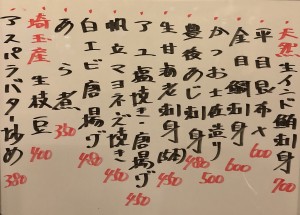 天然生インド鮪刺身 700
平目昆布〆 600
金目鯛刺身 600
かつお土佐造り 500
豊後あじ刺身 480
生甘海老刺身 450
アユ塩焼き・唐揚げ 450
帆立マヨネズ焼き 480
白エビ唐揚げ 480
あら煮 350
埼玉産生枝豆 400
アスパラバター炒め 380